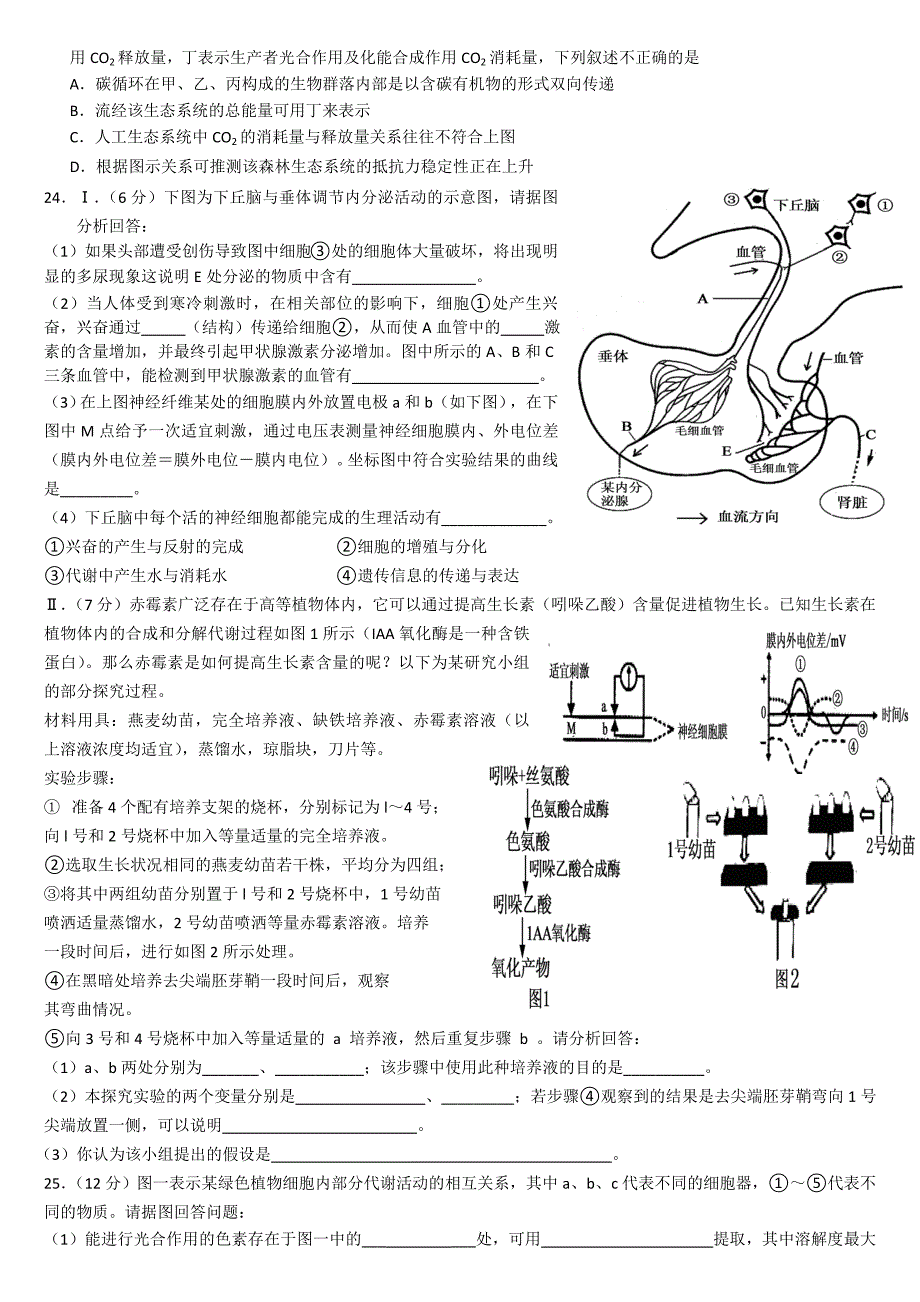 用CO₂释放量，丁表示生产者光合作用及化能合成作用CO₂消耗量，下列叙述不正确的是
A．碳循环在甲、乙、丙构成的生物群落内部是以含碳有机物的形式双向传递
B．流经该生态系统的总能量可用丁来表示
C．人工生态系统中CO₂的消耗量与释放量关系往往不符合上图
D．根据图示关系可推测该森林生态系统的抵抗力稳定性正在上升
24．Ⅰ.（6分）下图为下丘脑与垂体调节内分泌活动的示意图，请据图
分析回答：
（1）如果头部遭受创伤导致图中细胞③处的细胞体大量破坏，将出现明
显的多尿现象这说明E处分泌的物质中含有______________。
（2）当人体受到寒冷刺激时，在相关部位的影响下，细胞①处产生兴
奋，兴奋通过_____（结构）传递给细胞②，从而使A血管中的_____激
素的含量增加，并最终引起甲状腺激素分泌增加。图中所示的A、B和C
三条血管中，能检测到甲状腺激素的血管有______________________。
（3）在上图神经纤维某处的细胞膜内外放置电极a和b（如下图），在下
图中M点给予一次适宜刺激，通过电压表测量神经细胞膜内、外电位差
（膜内外电位差＝膜外电位－膜内电位）。坐标图中符合实验结果的曲线
是_________。
（4）下丘脑中每个活的神经细胞都能完成的生理活动有_____________。
①兴奋的产生与反射的完成 ②细胞的增殖与分化
③代谢中产生水与消耗水 ④遗传信息的传递与表达
③ 下丘脑 ①
②
血管
A
垂体
血管
B
毛细血管
E
毛细血管
C
某内分
泌腺
肾脏
血流方向
Ⅱ.（7分）赤霉素广泛存在于高等植物体内，它可以通过提高生长素（吲哚乙酸）含量促进植物生长。已知生长素在
植物体内的合成和分解代谢过程如图1所示（IAA氧化酶是一种含铁
蛋白）。那么赤霉素是如何提高生长素含量的呢？以下为某研究小组
的部分探究过程。
材料用具：燕麦幼苗，完全培养液、缺铁培养液、赤霉素溶液（以
上溶液浓度均适宜），蒸馏水，琼脂块，刀片等。
实验步骤：
① 准备4个配有培养支架的烧杯，分别标记为l～4号；
向l号和2号烧杯中加入等量适量的完全培养液。
②选取生长状况相同的燕麦幼苗若干株，平均分为四组；
③将其中两组幼苗分别置于l号和2号烧杯中，1号幼苗
喷洒适量蒸馏水，2号幼苗喷洒等量赤霉素溶液。培养
一段时间后，进行如图2所示处理。
④在黑暗处培养去尖端胚芽鞘一段时间后，观察
其弯曲情况。
适宜刺激
a
M
b
神经细胞膜
膜内外电位差/mV
+
0
-
①
②
③
④
时间/s
吲哚+丝氨酸
色氨酸合成酶
色氨酸
吲哚乙酸合成酶
吲哚乙酸
1AA氧化酶
氧化产物
图1
1号幼苗
2号幼苗
图2
⑤向3号和4号烧杯中加入等量适量的 a 培养液，然后重复步骤 b 。请分析回答：
（1）a、b两处分别为_______、___________；该步骤中使用此种培养液的目的是__________。
（2）本探究实验的两个变量分别是________________、_________；若步骤④观察到的结果是去尖端胚芽鞘弯向1号
尖端放置一侧，可以说明________________________。
（3）你认为该小组提出的假设是__________________________________________。
25.（12分）图一表示某绿色植物细胞内部分代谢活动的相互关系，其中a、b、c代表不同的细胞器，①～⑤代表不
同的物质。请据图回答问题：
（1）能进行光合作用的色素存在于图一中的______________处，可用_____________________提取，其中溶解度最大